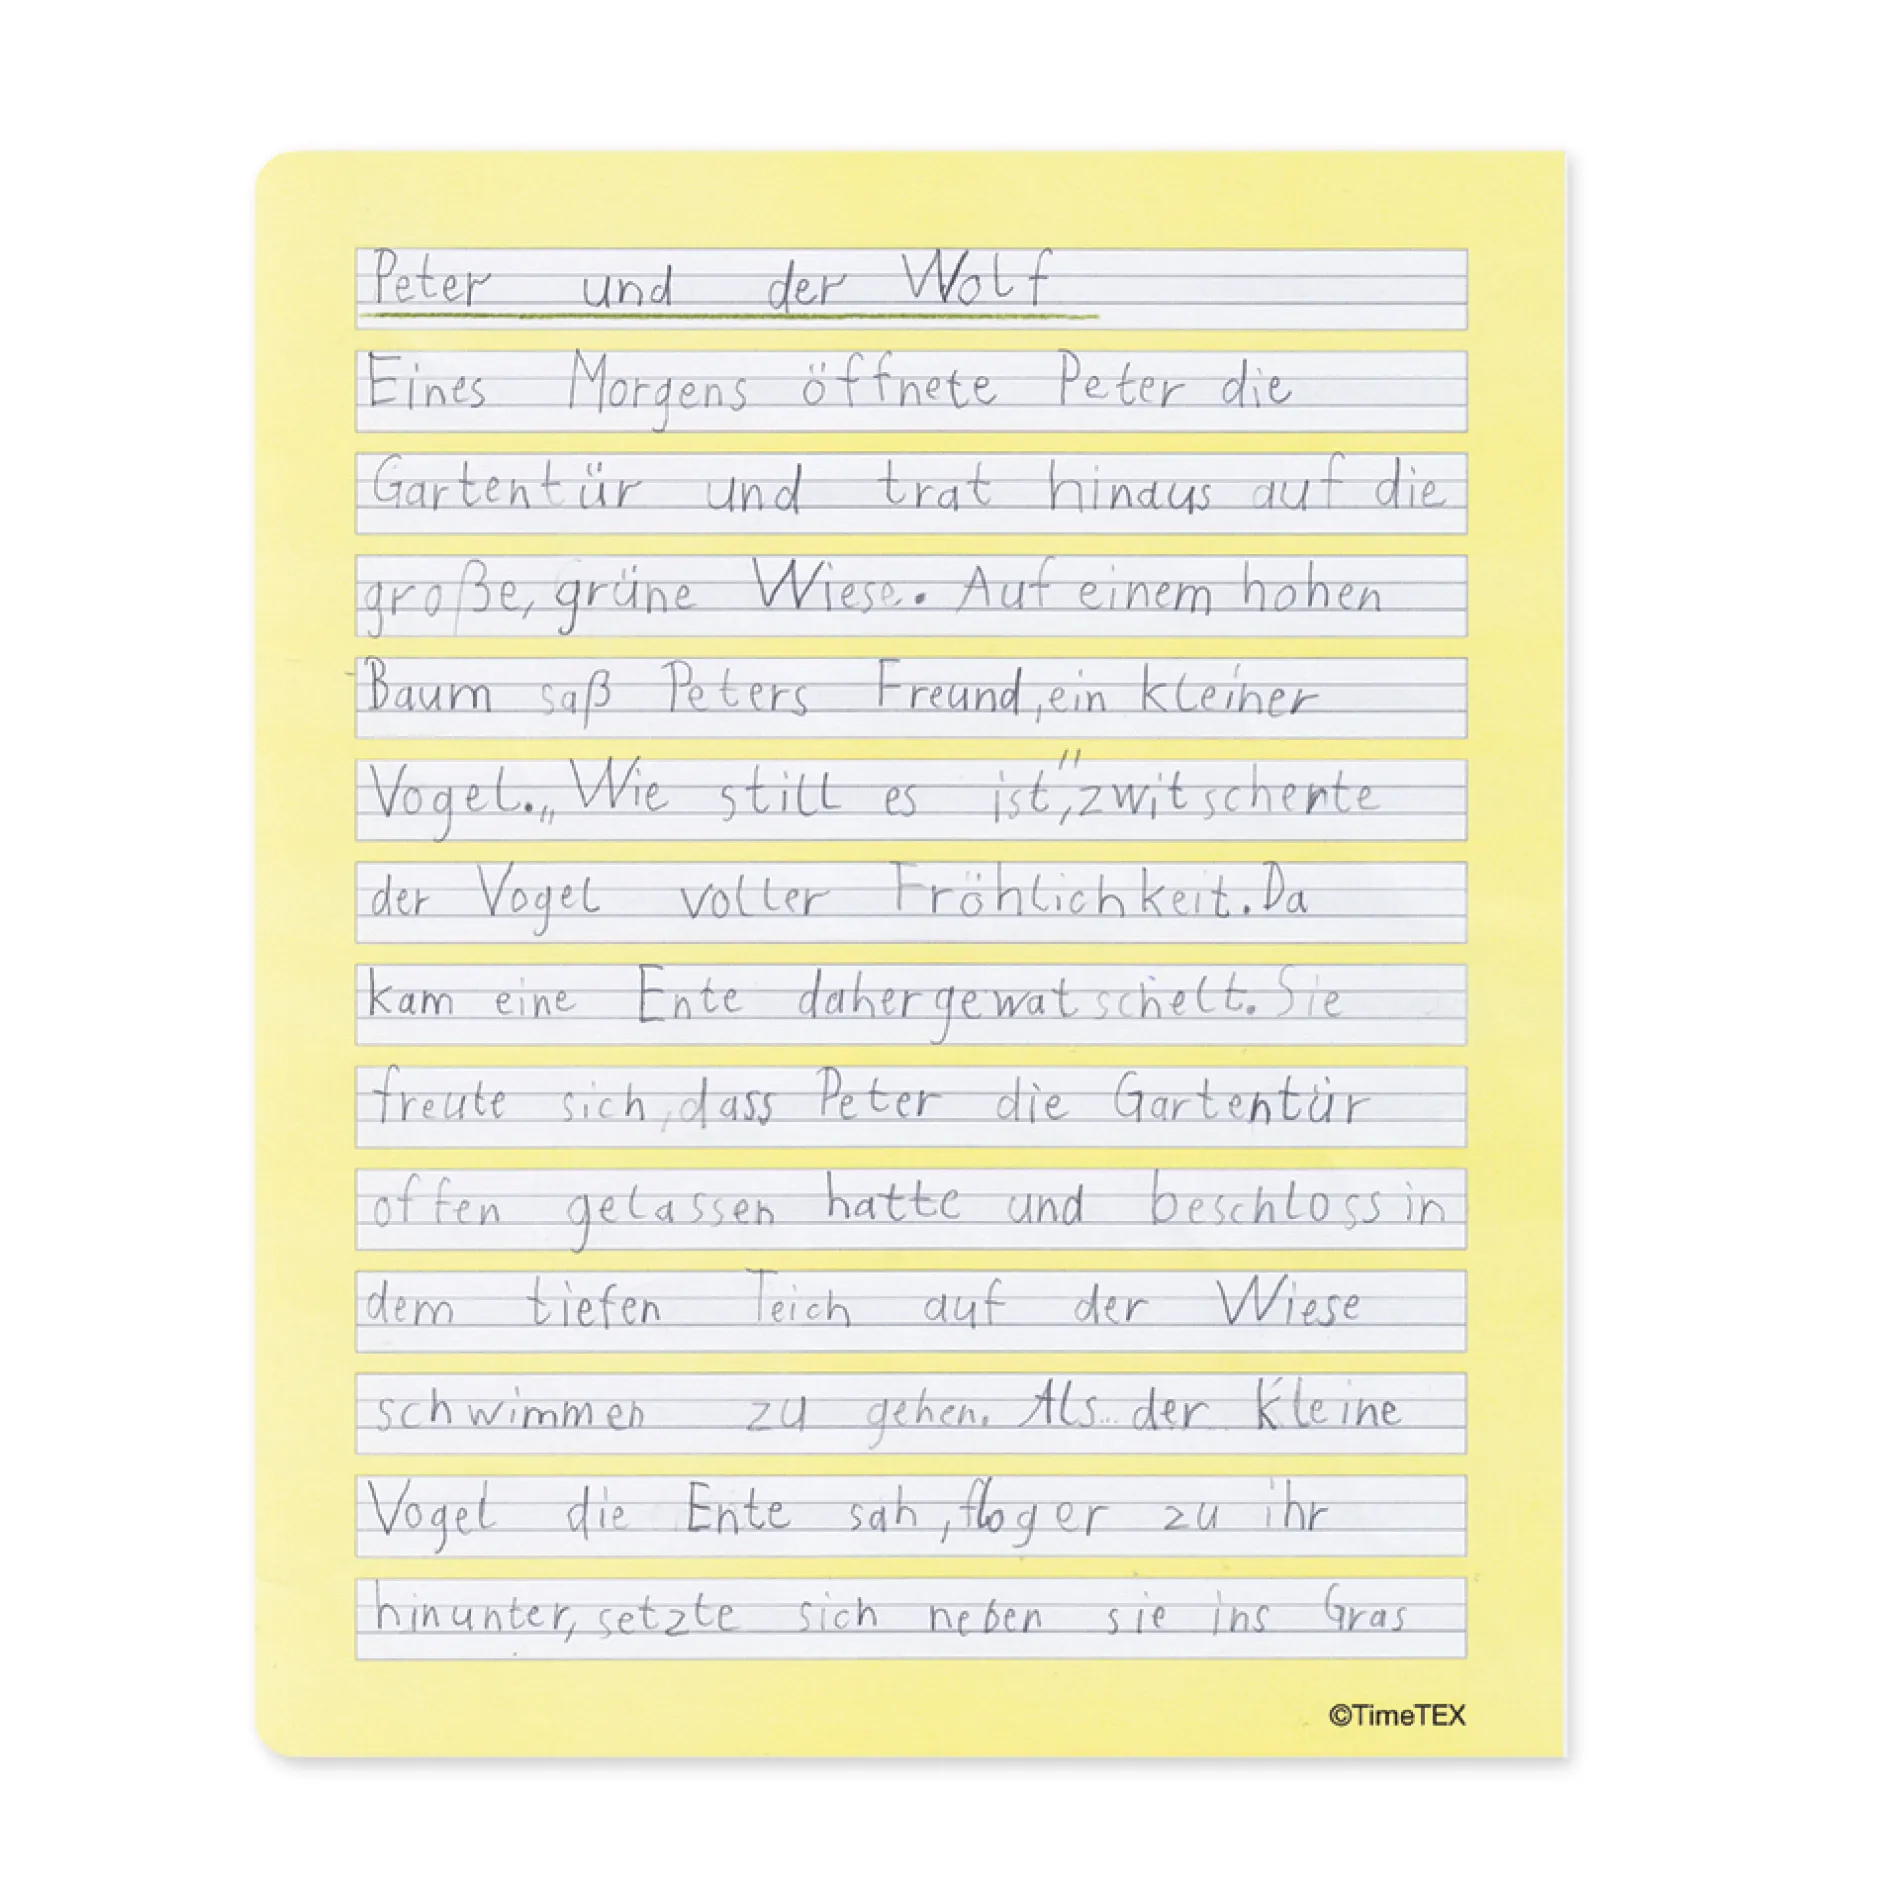 Peter und der Wolf
Eines Morgens öffnete Peter die
Gartentür und trat hinaus auf die
große, grüne Wiese. Auf einem hohen
Baum saß Peters Freund, ein kleiner
Vogel. „Wie still es ist", zwitscherte
der Vogel voller Fröhlichkeit. Da
kam eine Ente dahergewatschelt. Sie
freute sich, dass Peter die Gartentür
offen gelassen hatte und beschloss in
dem tiefen Teich auf der Wiese
schwimmen zu gehen. Als der kleine
Vogel die Ente sah, flog er zu ihr
hinunter, setzte sich neben sie ins Gras
©TimeTEX